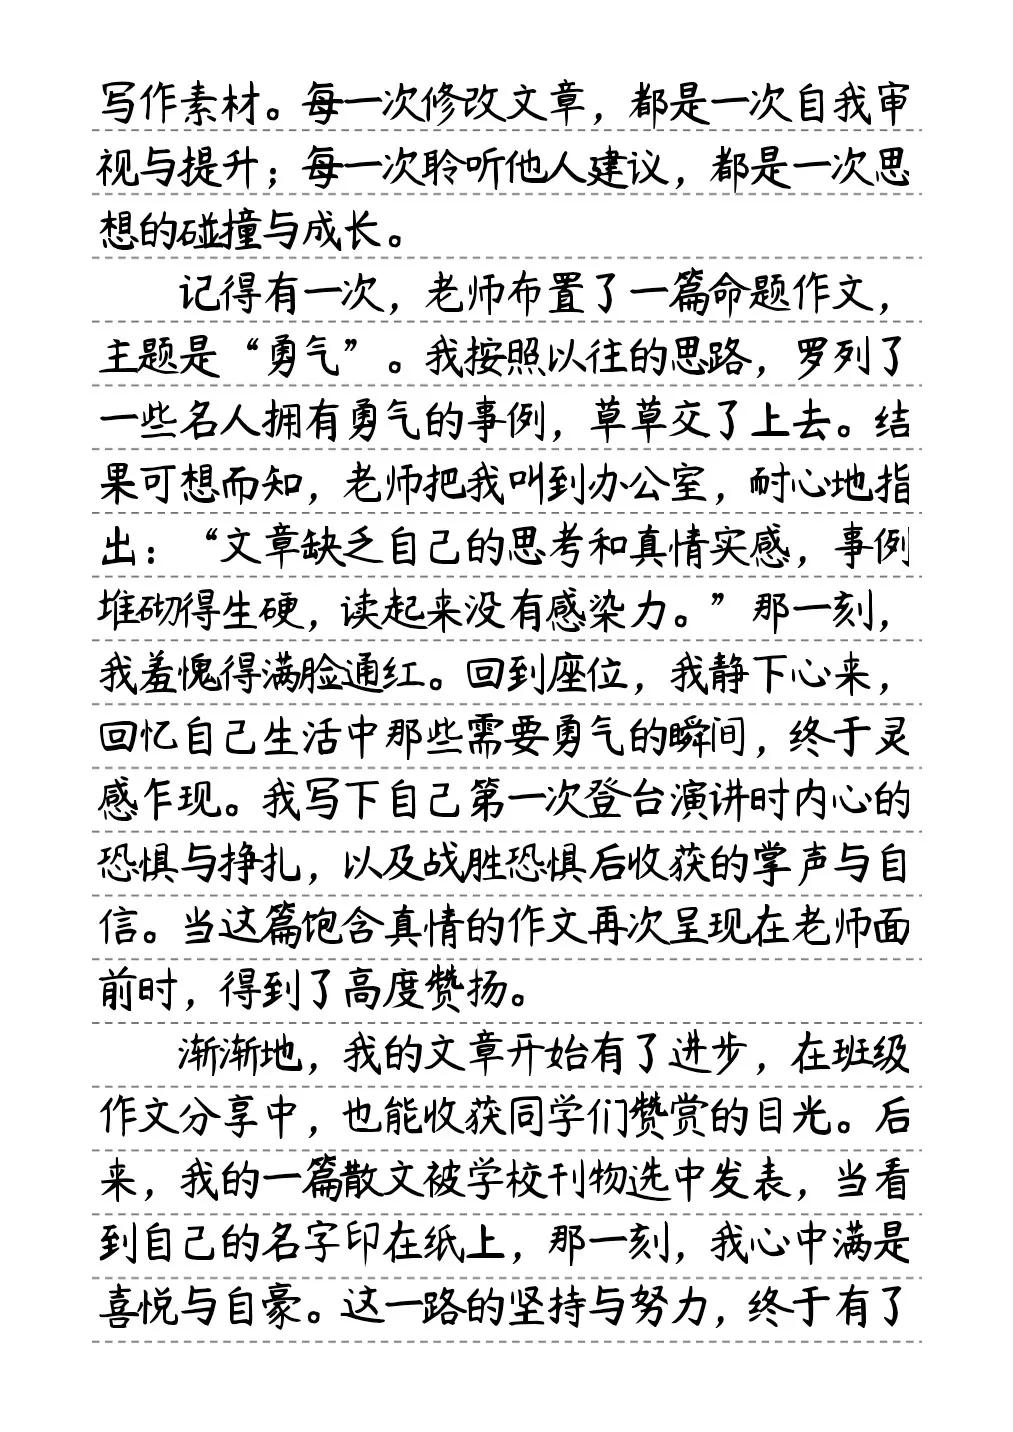 写作素材。每一次修改文章，都是一次自我审
视与提升；每一次聆听他人建议，都是一次思
想的碰撞与成长。
记得有一次，老师布置了一篇命题作文，
主题是“勇气”。我按照以往的思路，罗列了
一些名人拥有勇气的事例，草草交了上去。结
果可想而知，老师把我叫到办公室，耐心地指
出：“文章缺乏自己的思考和真情实感，事例
堆砌得生硬，读起来没有感染力。”那一刻，
我羞愧得满脸通红。回到座位，我静下心来，
回忆自己生活中那些需要勇气的瞬间，终于灵
感乍现。我写下自己第一次登台演讲时内心的
恐惧与挣扎，以及战胜恐惧后收获的掌声与自
信。当这篇饱含真情的作文再次呈现在老师面
前时，得到了高度赞扬。
渐渐地，我的文章开始有了进步，在班级
作文分享中，也能收获同学们赞赏的目光。后
来，我的一篇散文被学校刊物选中发表，当看
到自己的名字印在纸上，那一刻，我心中满是
喜悦与自豪。这一路的坚持与努力，终于有了